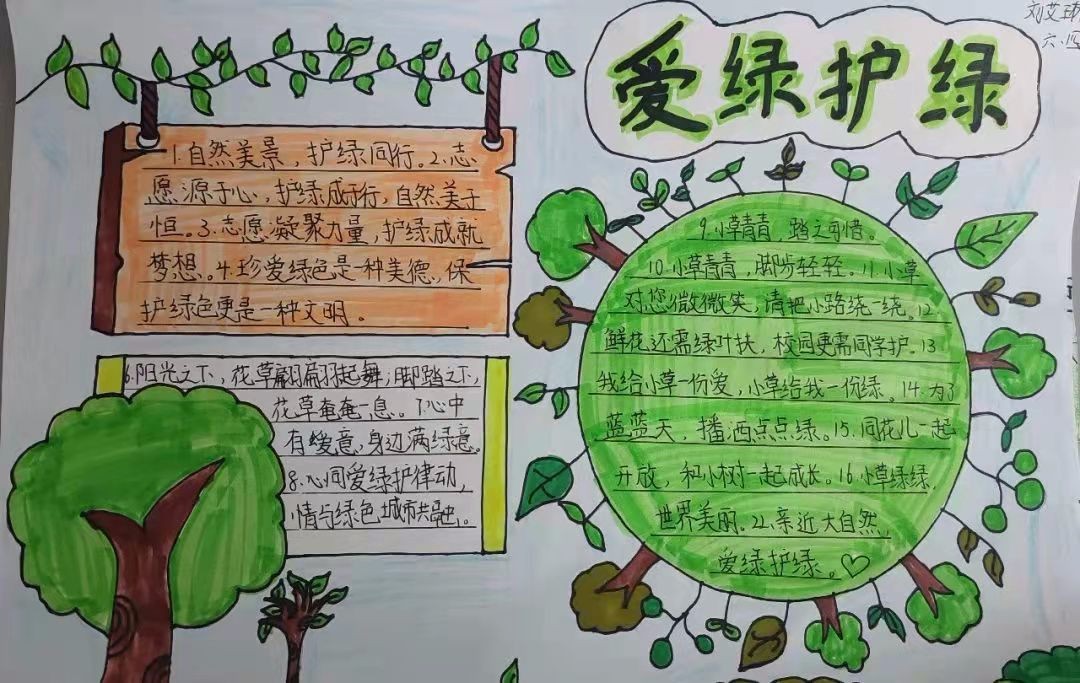 爱绿护绿
六.四
1.自然美景，护绿同行。2.志
愿源于心，护绿成于行，自然美于
恒。3.志愿凝聚力量，护绿成就
梦想。4.珍爱绿色是一种美德，保
护绿色更是一种文明。
6.阳光之下，花草翩翩起舞；脚踏之下，
花草奄奄一息。7.心中
有爱意，身边满绿意。
8.心同爱绿护律动，
情与绿色城市共融。
9.小草青青，踏之可惜。
10.小草青青，脚步轻轻。11.小草
对您微微笑，请把小路绕一绕。12
鲜花还需绿叶扶，校园更需同学护。13
我给小草一份爱，小草给我一份绿。14.为了
蓝蓝天，播洒点点绿。15.同花儿一起
开放，和小树一起成长。16.小草绿绿，
世界美丽。22.亲近大自然，
爱绿护绿。